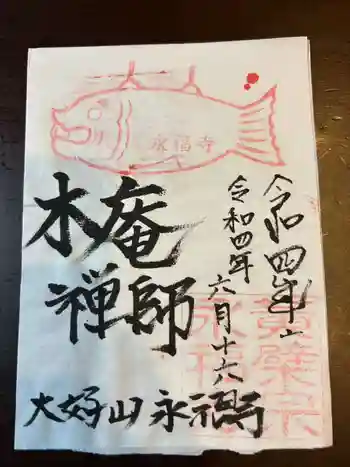 永福寺
木庵
禅師
令和四年
令和四年
六月十六
大好山 永福寺
黄檗宗
永福